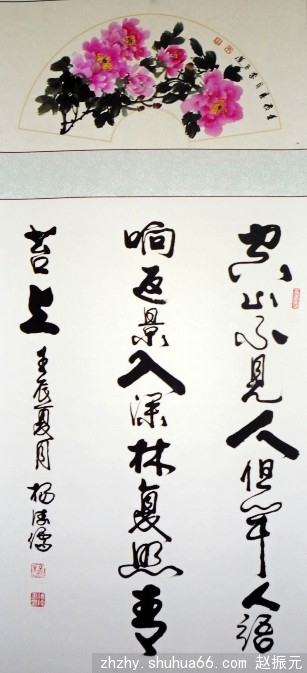 空山不見人但闻人語
响返景入深林复照青
苔上
壬辰夏月 杨
zhzhy.shuhua66.com 赵振元